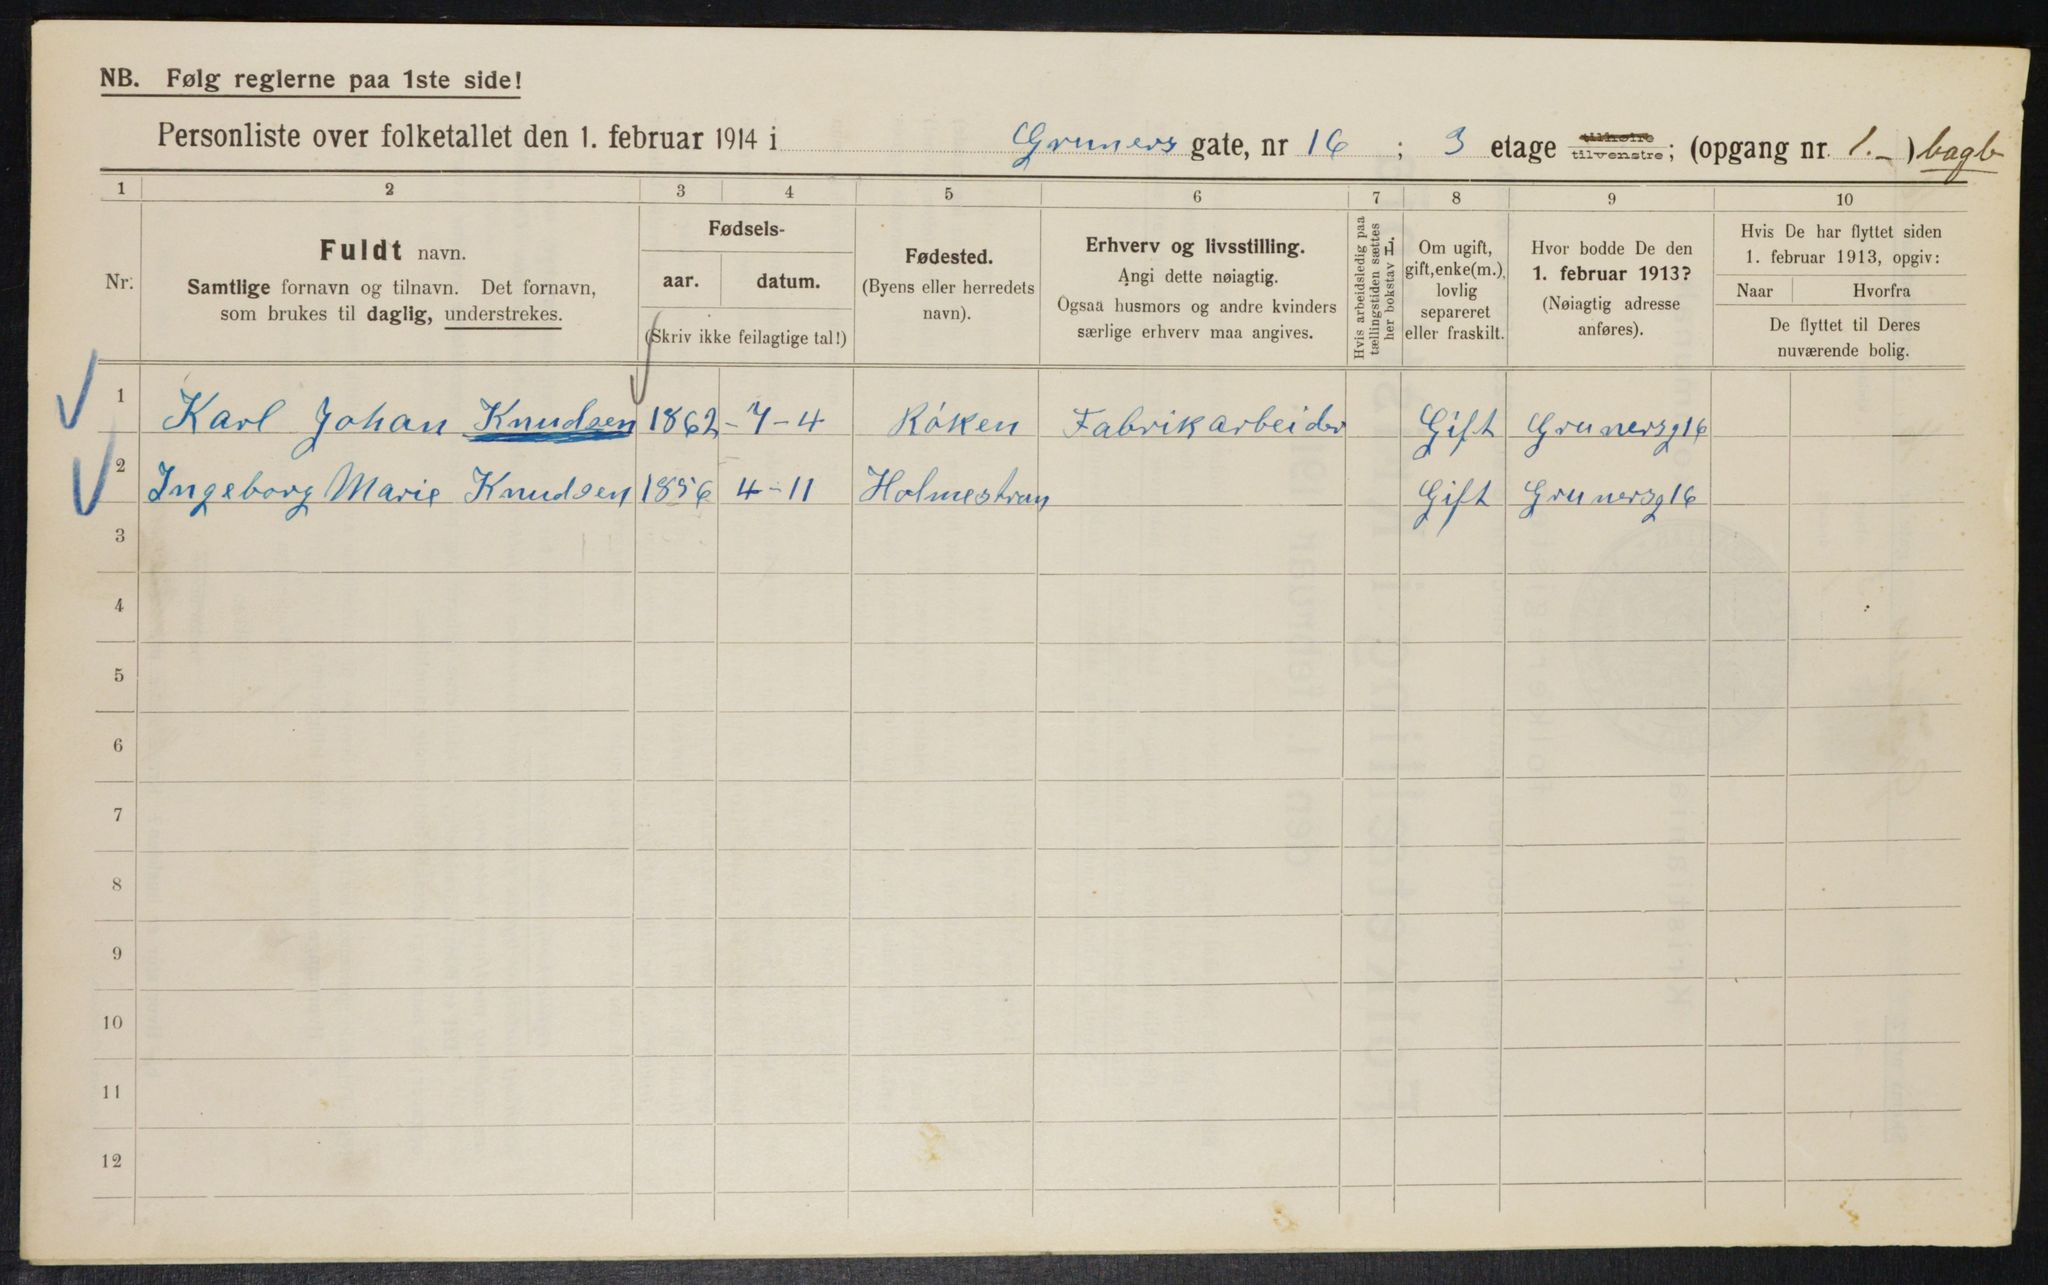 NB. Følg reglerne paa 1ste side!
Personliste over folketallet den 1. februar 1914 i Gruners gate, nr 16 ; 3 etage tilhøire tilvenstre; (opgang nr. 1.-) bagb
1 2 3 4 5 6 7 8 9 10
Nr.
Fuldt navn.
Samtlige fornavn og tilnavn. Det fornavn,
som brukes til daglig, understrekes.
Fødsels-
aar. datum.
(Skriv ikke feilagtige tal!)
Fødested.
(Byens eller herredets
navn).
Erhverv og livsstilling.
Angi dette nøiagtig.
Ogsaa husmors og andre kvinders
særlige erhverv maa angives.
Hvis arbeidsledig paa
tællingstiden sættes
her bokstav L.
Om ugift,
gift, enke(m.),
lovlig
separeret
eller fraskilt.
Hvor bodde De den
1. februar 1913?
(Nøiagtig adresse
anføres).
Hvis De har flyttet siden
1. februar 1913, opgiv:
Naar Hvorfra
De flyttet til Deres
nuværende bolig.
1 Karl Johan Knudsen 1862 - 7 - 4 Röken Fabrikarbeider Gift Grunersg 16
2 Ingeborg Marie Knudsen 1856 4 - 11 Holmestran Gift Grunersg 16
3
4
5
6
7
8
9
10
11
12